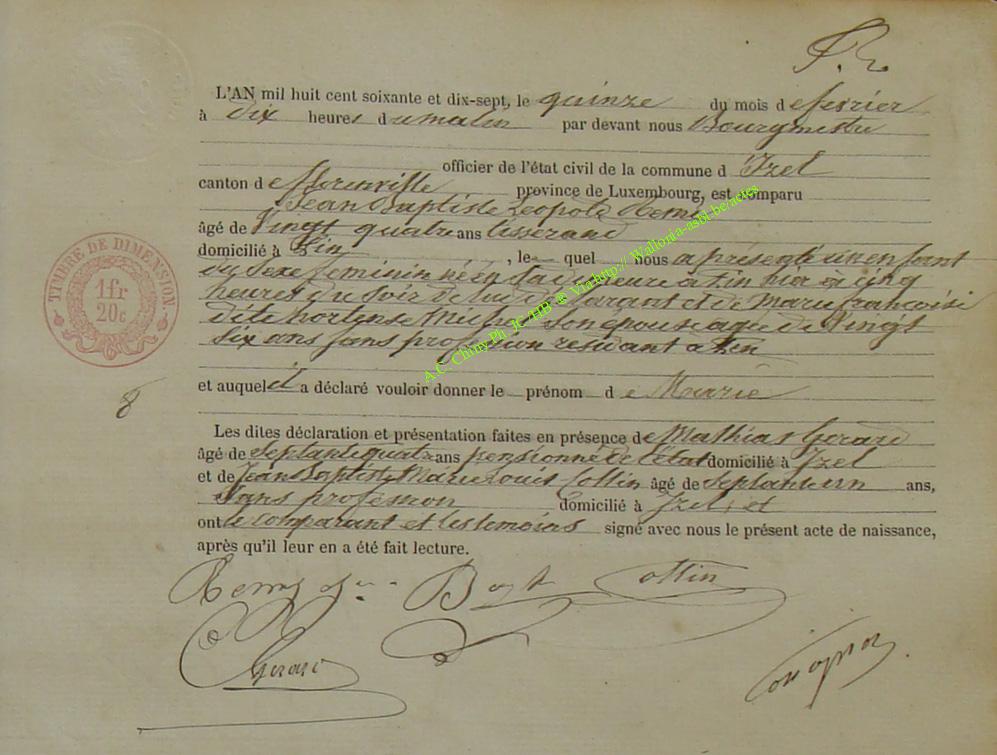 L'AN mil huit cent soixante et dix-sept, le quinze du mois de fevrier
à dix heures du matin par devant nous Bourgmestre
officier de l'état civil de la commune d'Izel
canton de florenville province de Luxembourg, est comparu
Jean Baptiste Leopold Remy
âgé de Vingt quatre ans tisserand
domicilié à Tin, le quel nous a présenté un enfant
du sexe feminin né en sa demeure à Tin hier à cinq
heures du soir de lui déclarant et de Marie françoise
dite hortense son épouse agée de Vingt
six ans sans profession résidant à Tin
et auquel il a déclaré vouloir donner le prénom de Marie
8
Les dites déclaration et présentation faites en présence de Mathias Gerard
âgé de Septante quatre ans pensionné de l'état domicilié à Izel
et de Jean Baptiste Marie Louis Collin âgé de Septante un ans,
Sans profession domicilié à Izel, et
ont le comparant et les temoins signé avec nous le présent acte de naissance,
après qu'il leur en a été fait lecture.
Remy Bapt Collin
Gerard
TIMBRE DE DIMENSION
1 fr
20c
A.C. Chiny Ph. JC-HB @ Via http:// Wallonia-asbl.be/actes